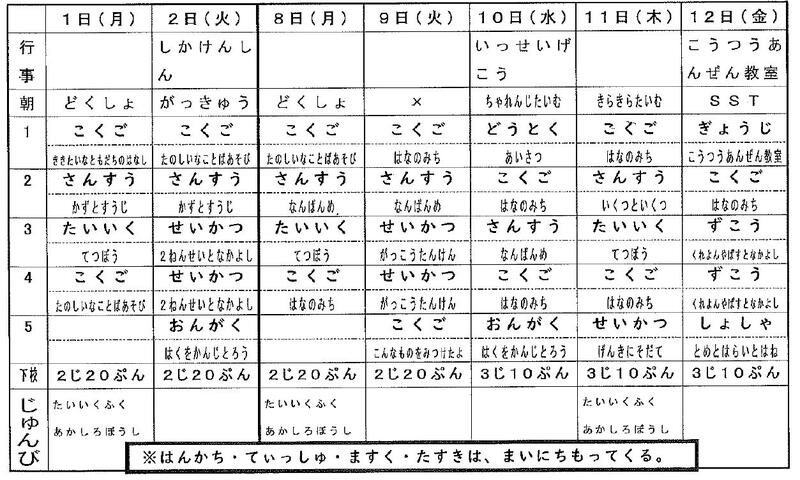 1日(月) 2日(火) 8日(月) 9日(火) 10日(水) 11日(木) 12日(金)
行事 しかけんしん いっせいげこう こうつうあんぜん教室
朝 どくしょ がっきゅう どくしょ × ちゃれんじたいむ きらきらたいむ SST
1 こくご こくご こくご こくご どうとく こくご ぎょうじ
ききたいなともだちのはなし たのしいなことばあそび たのしいなことばあそび はなのみち あいさつ はなのみち こうつうあんぜん教室
2 さんすう さんすう さんすう さんすう こくご さんすう こくご
かずとすうじ かずとすうじ なんばんめ なんばんめ はなのみち いくつといくつ はなのみち
3 たいいく せいかつ たいいく せいかつ さんすう たいいく ずこう
てつぼう 2ねんせいとなかよし てつぼう がっこうたんけん なんばんめ てつぼう くれよんやぱすとなかよし
4 こくご せいかつ こくご せいかつ こくご こくご ずこう
たのしいなことばあそび 2ねんせいとなかよし はなのみち がっこうたんけん はなのみち はなのみち くれよんやぱすとなかよし
5 おんがく こくご おんがく せいかつ しょしゃ
はくをかんじとろう こんなものをみつけたよ はくをかんじとろう げんきにそだて とめとはらいとはね
下校 2じ20ぷん 2じ20ぷん 2じ20ぷん 2じ20ぷん 3じ10ぷん 3じ10ぷん 3じ10ぷん
じゅんび たいいくふく たいいくふく たいいくふく
あかしろぼうし あかしろぼうし あかしろぼうし
※はんかち・てぃっしゅ・ますく・たすきは、まいにちもってくる。